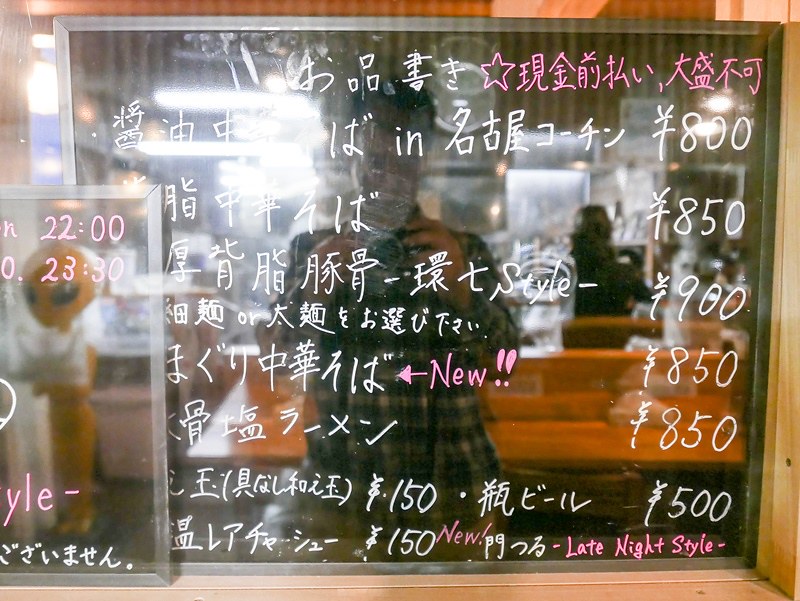 お品書き ☆現金前払い、大盛不可
醤油中華そば in 名古屋コーチン ¥800
脂中華そば ¥850
厚背脂豚骨-環七Style- ¥900
細麺 or 太麺をお選び下さい
まぐり中華そば ←New!! ¥850
骨塩ラーメン ¥850
え玉(具なし和え玉) ¥150 ・瓶ビール ¥500
温レアチャーシュー ¥150 New! 門つる -Late Night Style-
22:00
0. 23:30
yle-
ございません。